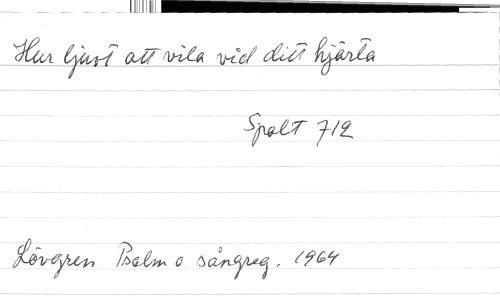 Hur ljust att vila vid ditt hjärta
Spalt 712
Lövgren Psalm o. sångreg. 1964